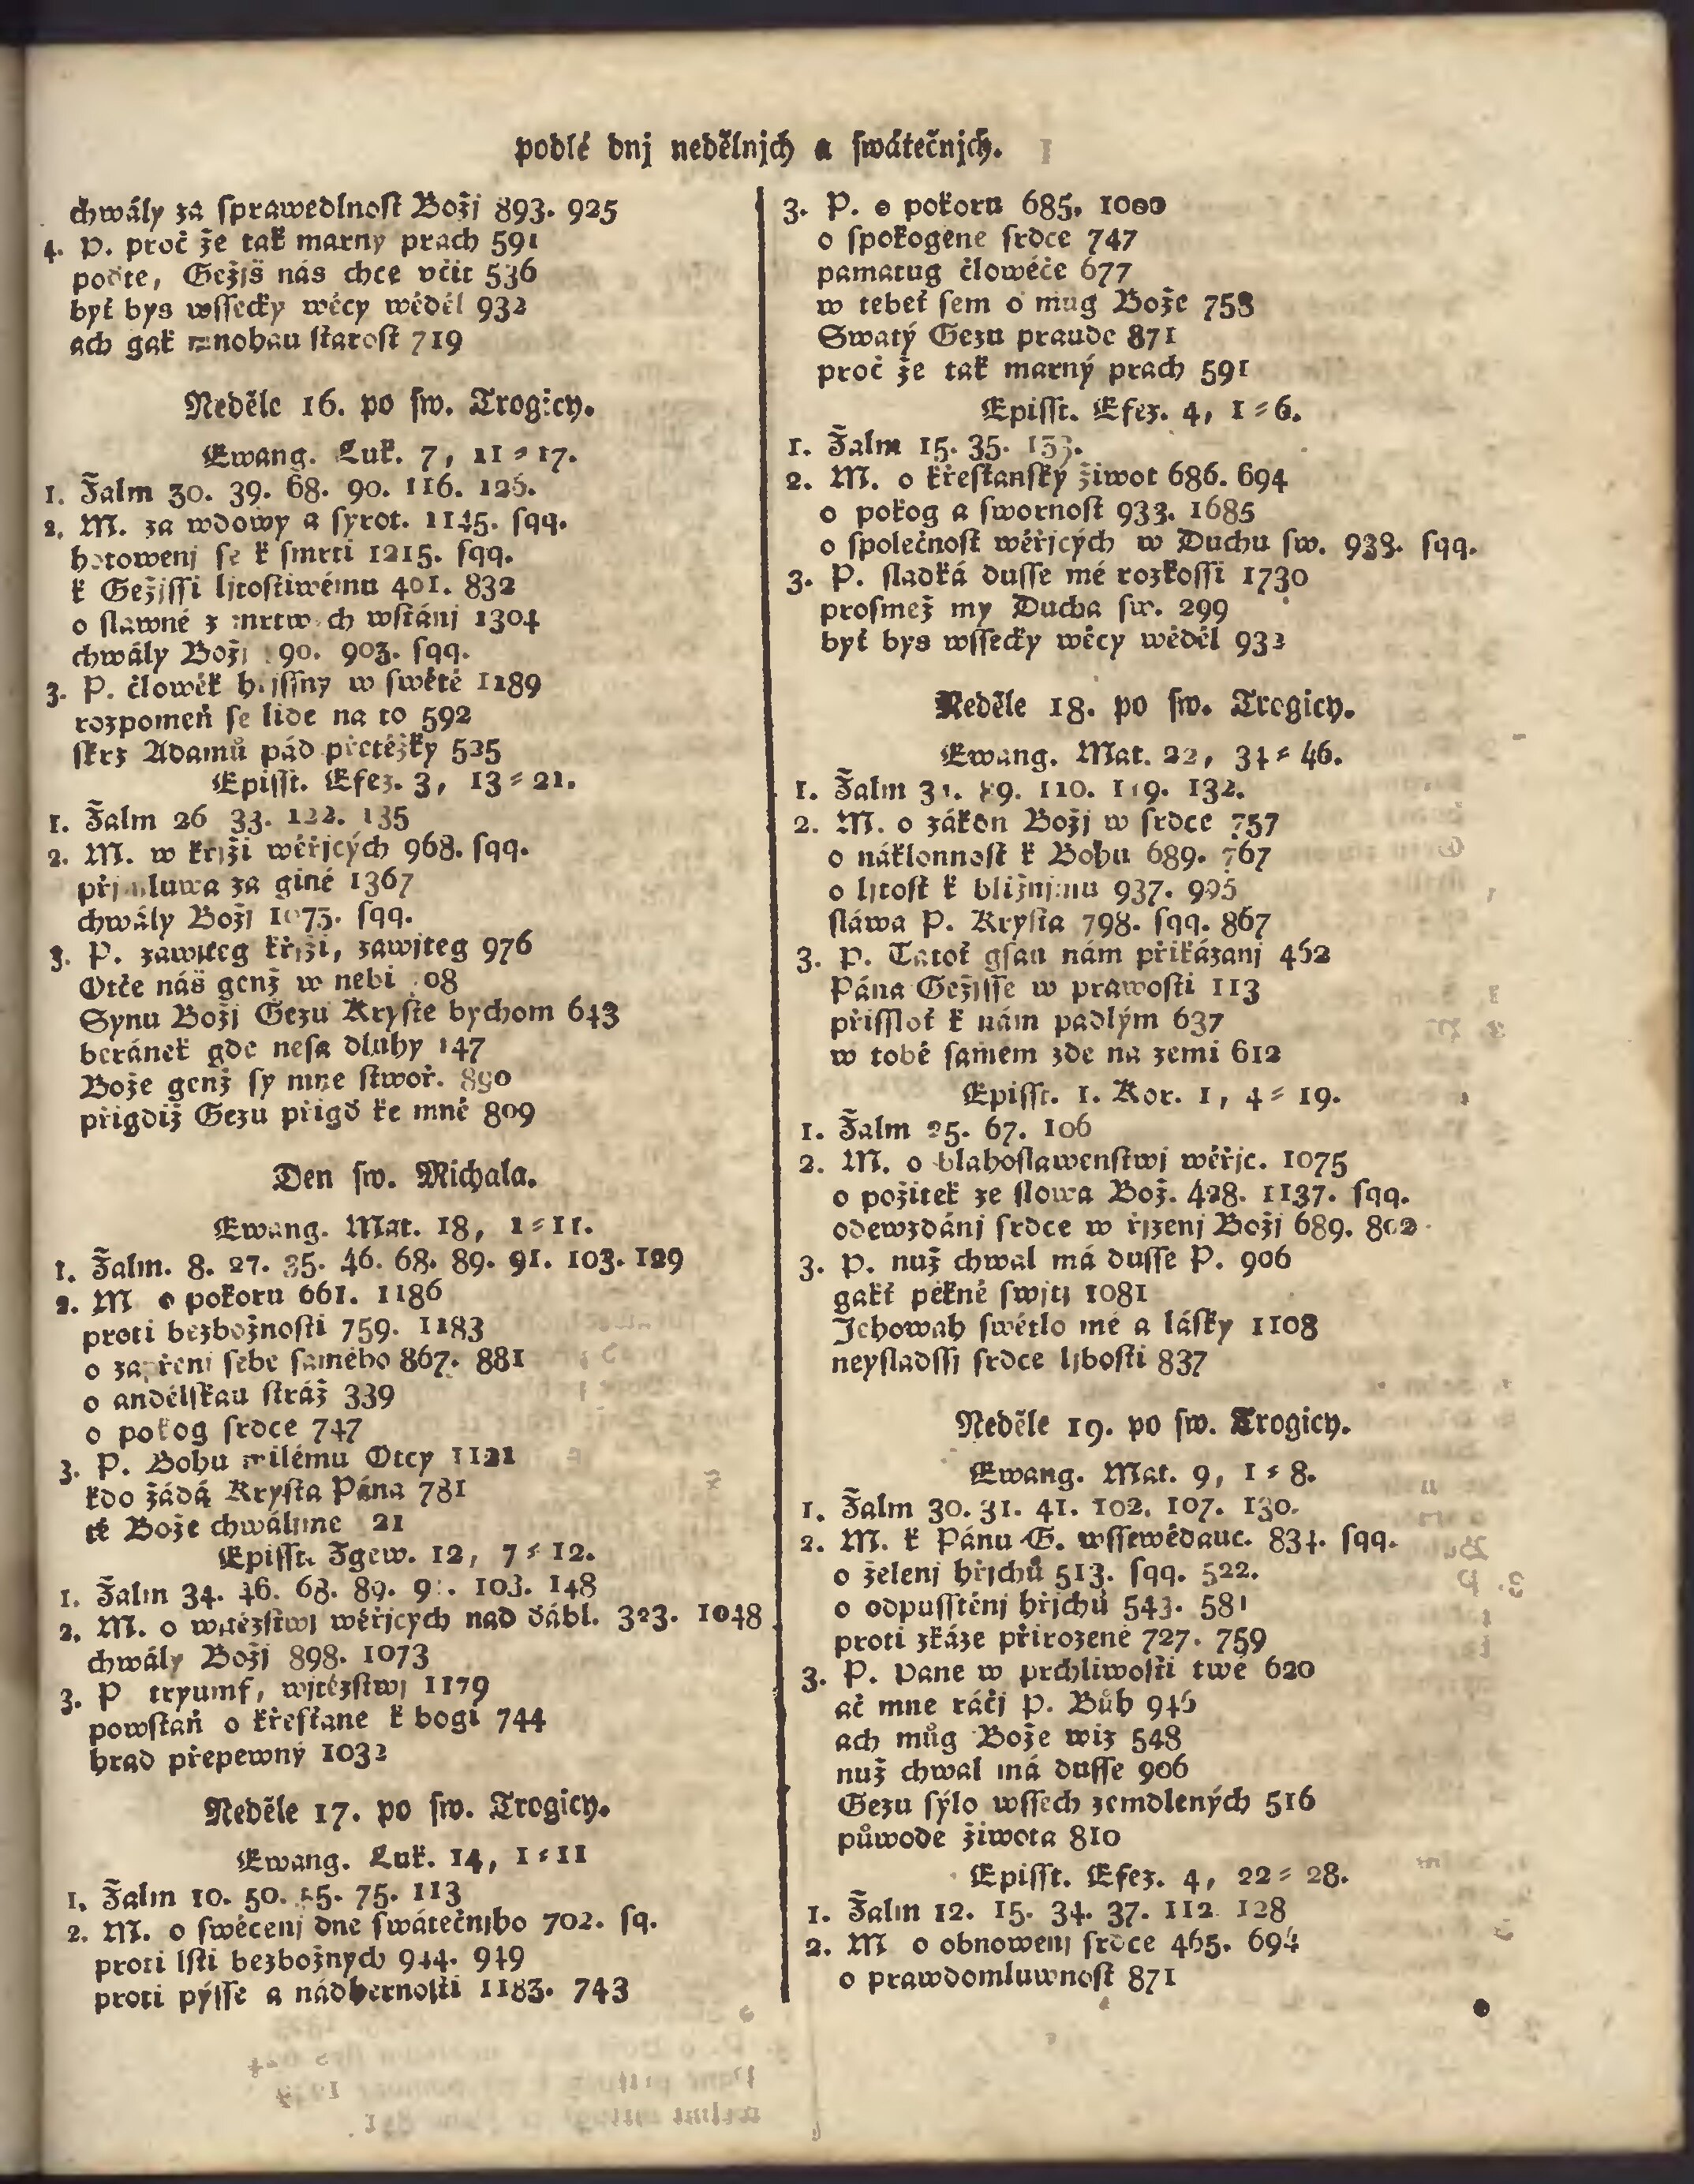 podlé dnj nedělnjch a ſwátečnjch.
chwály za ſprawedlnoſt Božj 893. 925
4. P. proč že tak marny prach 591
poďte, Gežjš nás chce včit 536
byť bys wſſecky wěcy wěděl 932
ach gak mnohau ſtaroſt 719
Neděle 16. po ſw. Trogicy.
Ewang. Luk. 7, 11-17.
1. Žalm 30. 39. 68. 90. 116. 126.
2. M. za wdowy a ſyrot. 1145. ſqq.
hotowenj ſe k ſmrti 1215. ſqq.
k Gežjſſi ljtoſtiwému 401. 832
o ſlawné z mrtwch wſtánj 1304
chwály Božj 90. 903. ſqq.
3. P. člowěk hřjſſny w ſwětě 1189
rozpomeň ſe lide na to 592
ſkrz Adamů pád přetěžky 525
Epiſſt. Efez. 3, 13-21.
1. Žalm 26 33. 122. 135
2. M. w křjži wěřjcých 968. ſqq.
přjmluwa za giné 1367
chwály Božj 1075. ſqq.
3. P. zawjteg křjži, zawjteg 976
Otče náš genž w nebi 08
Synu Božj Gezu Kryſte bychom 643
beránek gde neſa dluhy 147
Bože genž ſy mne ſtwoř. 890
přigdiž Gezu přigď ke mně 809
Den ſw. Michala.
Ewang. Mat. 18, 1-11.
1. Žalm. 8. 27. 35. 46. 68. 89. 91. 103. 129
2. M o pokoru 661. 1186
proti bezbožnoſti 759. 1183
o zapřenj ſebe ſamého 867. 881
o andělſkau ſtráž 339
o pokog ſrdce 747
3. P. Bohu milému Otcy 1121
kdo žádá Kryſta Pána 781
tě Bože chwálime 21
Epiſſt. Zgew. 12, 7-12.
1. Žalm 34. 46. 68. 89. 91. 103. 148
2. M. o wjtězſtwj wěřjcých nad ďábl. 323. 1048
chwály Božj 898. 1073
3. P tryumf, wjtězſtwj 1179
powſtaň o křeſťane k bogi 744
hrad přepewný 1032
Neděle 17. po ſw. Trogicy.
Ewang. Luk. 14, 1-11
1. Žalm 10. 50. 55. 75. 113
2. M. o ſwěcenj dne ſwátečnjho 702. ſq.
proti lſti bezbožnych 944. 949
proti pýſſe a nádhernoſti 1183. 743
3. P. o pokoru 685. 1000
o ſpokogene ſrdce 747
pamatug člowěče 677
w tebeť ſem o mug Bože 758
Swatý Gezu praude 871
proč že tak marný prach 591
Epiſſt. Efez. 4, 1-6.
1. Žalm 15. 35. 133.
2. M. o křeſťanſký žiwot 686. 694
o pokog a ſwornoſt 933. 1685
o ſpolečnoſt wěřjcých w Duchu ſw. 938. ſqq.
3. P. ſladká duſſe mé rozkoſſi 1730
proſmež my Ducha ſw. 299
byť bys wſſecky wěcy wěděl 932
Neděle 18. po ſw. Trogicy.
Ewang. Mat. 22, 34-46.
1. Žalm 31. 89. 110. 119. 132.
2. M. o zákon Božj w ſrdce 757
o náklonnoſt k Bohu 689. 767
o ljtoſt k bližnjmu 937. 995
ſláwa P. Kryſta 798. ſqq. 867
3. P. Tatoť gſau nám přikázanj 462
Pána Gežjſſe w prawoſti 113
přiſſloť k nám padlým 637
w tobě ſamém zde na zemi 612
Epiſſt. 1. Kor. 1, 4-19.
1. Žalm 25. 67. 106
2. M. o blahoſlawenſtwj wěřjc. 1075
o požitek ze ſlowa Bož. 428. 1137. ſqq.
odewzdánj ſrdce w řjzenj Božj 689. 802
3. P. nuž chwal má duſſe P. 906
gakť pěkně ſwjtj 1081
Jehowah ſwětlo mé a láſky 1108
neyſladſſj ſrdce ljboſti 837
Neděle 19. po ſw. Trogicy.
Ewang. Mat. 9, 1-8.
1. Žalm 30. 31. 41. 102. 107. 130.
2. M. k Pánu G. wſſewědauc. 834. ſqq.
o želenj hřjchů 513. ſqq. 522.
o odpuſſtěnj hřjchů 543. 581
proti zkáze přirozené 727. 759
3. P. Pane w prchliwoſti twé 620
ač mne ráčj P. Bůh 946
ach můg Bože wiz 548
nuž chwal má duſſe 906
Gezu ſýlo wſſech zemdlených 516
půwode žiwota 810
Epiſſt. Efez. 4, 22-28.
1. Žalm 12. 15. 34. 37. 112 128
2. M o obnowenj ſrdce 465. 694
o prawdomluwnoſt 871